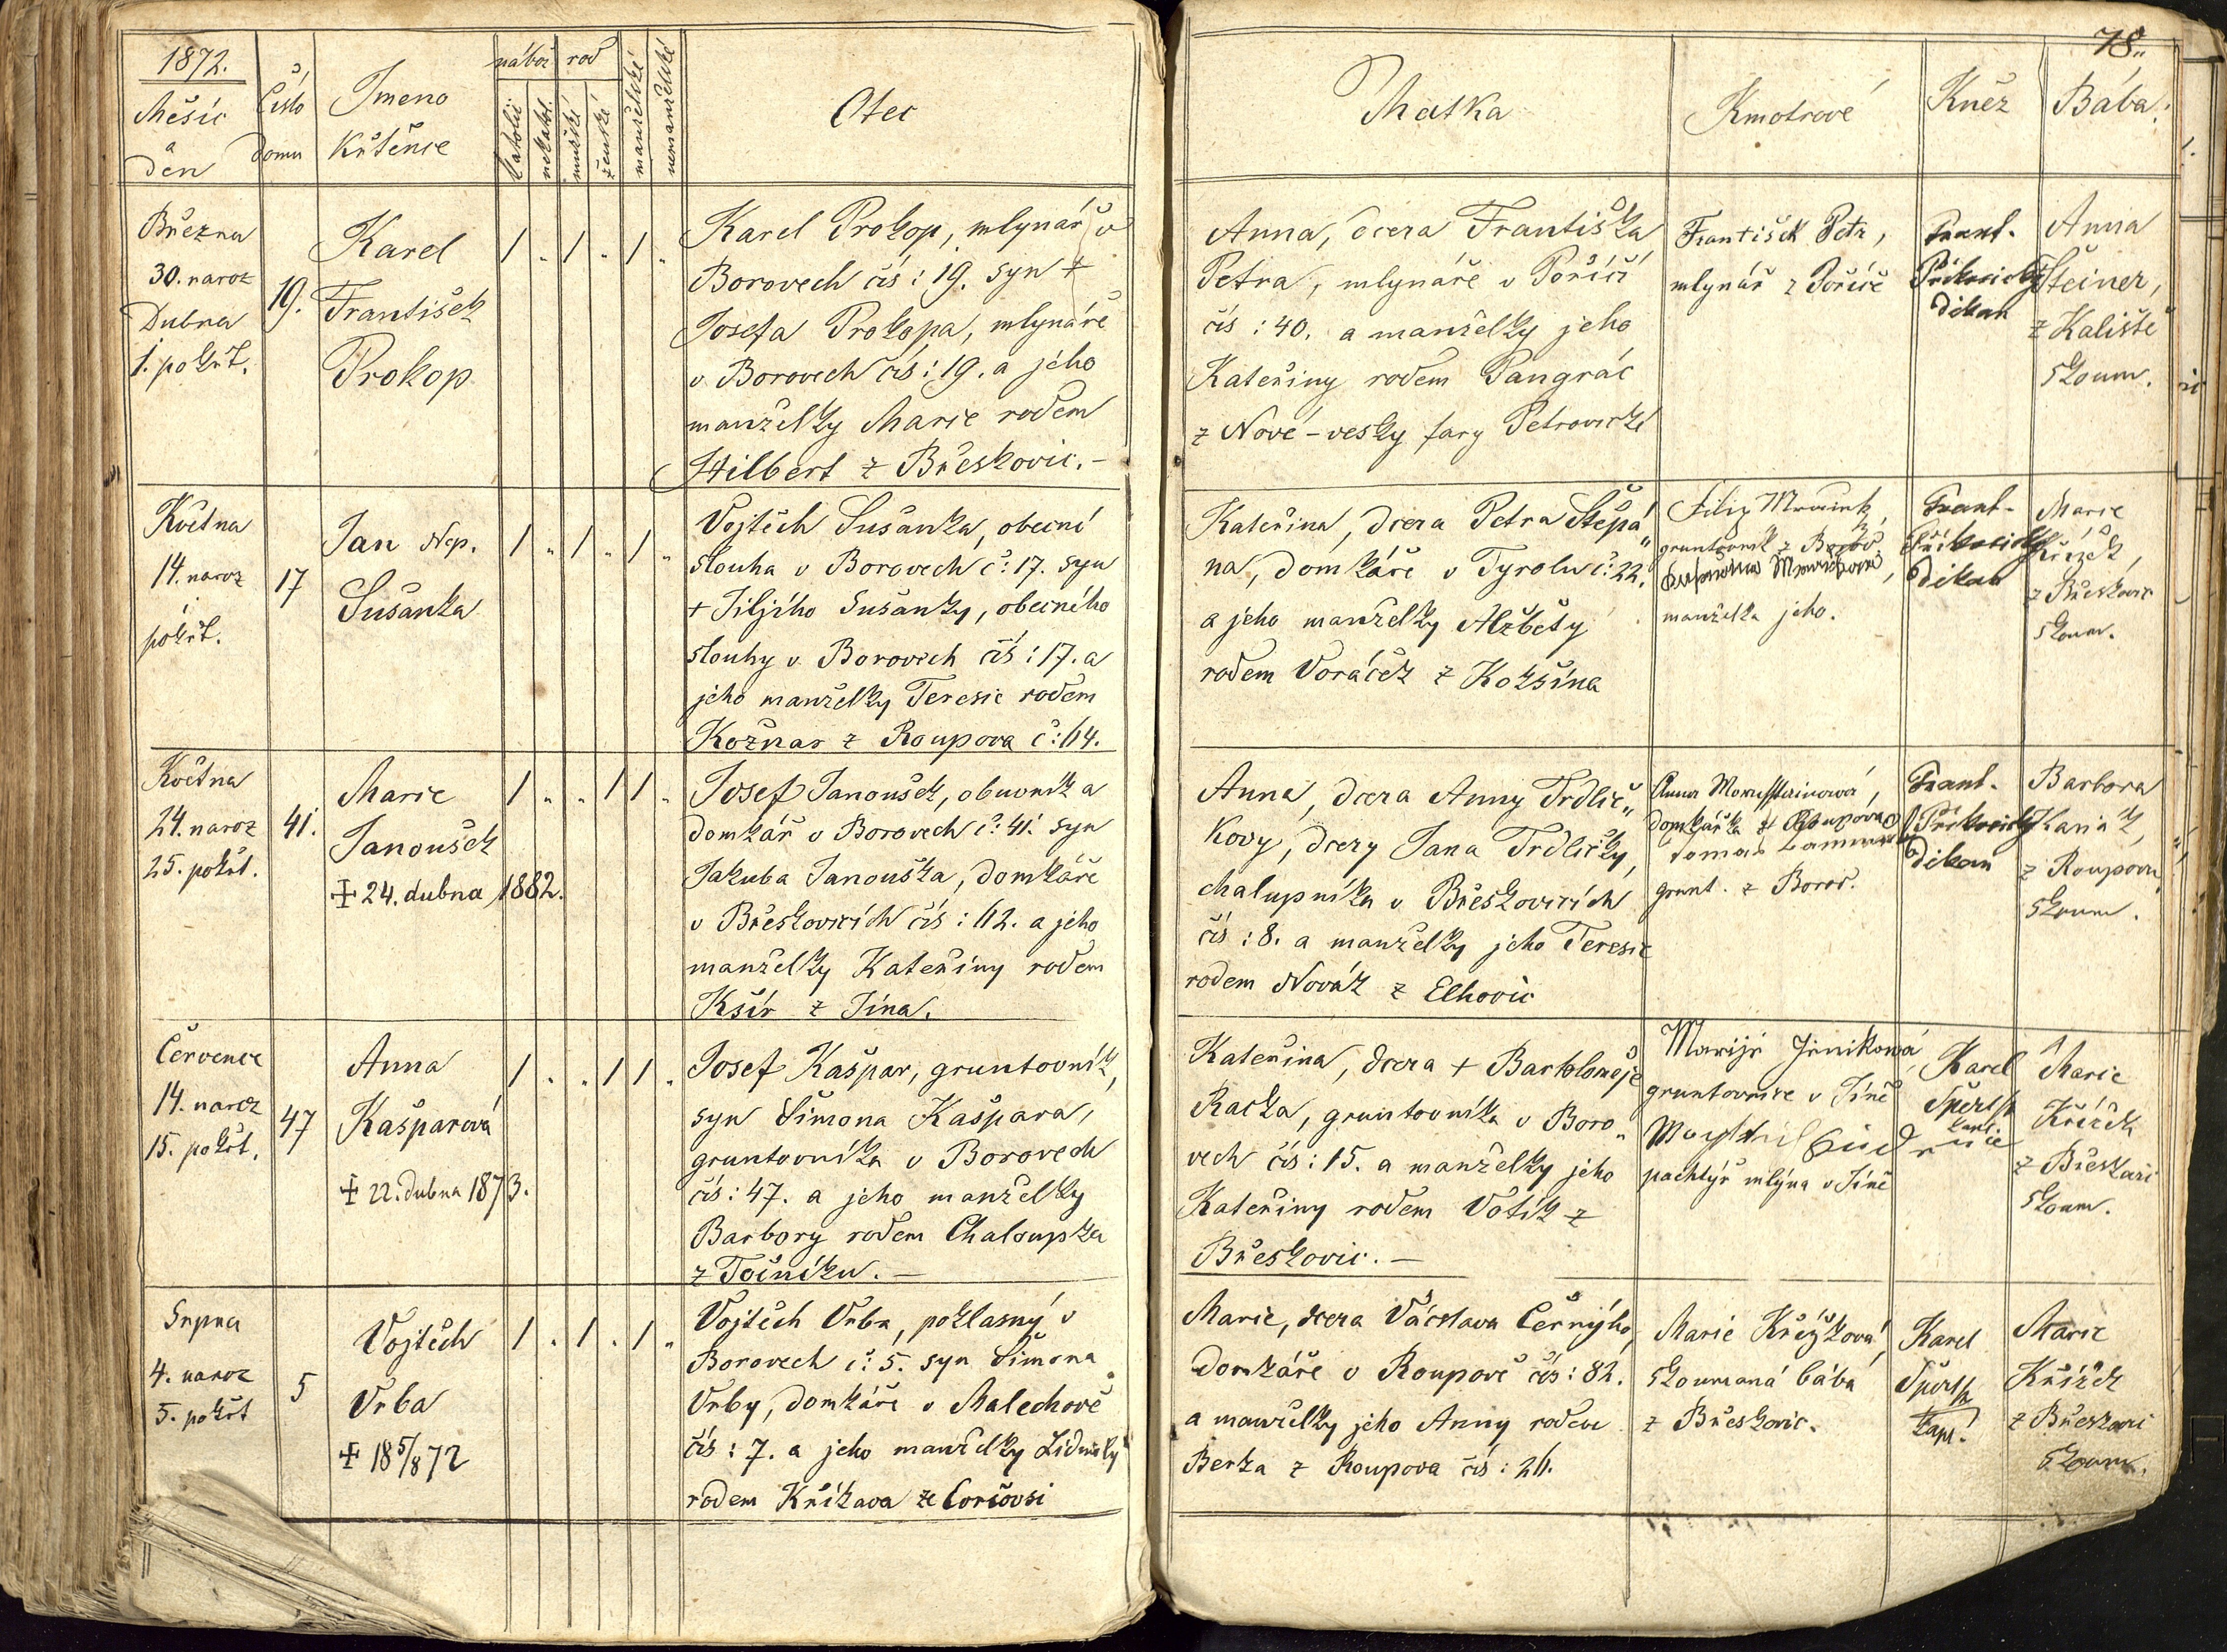 1872.
Měsíc
a
den
Číslo
domu
Jmeno
křtěnce
nábož
rod
katolic
nekatol.
mužské
ženské
manželské
nemanželské
Otec
Března
30. naroz
Dubna
1. pokřt.
19.
Karel
František
Prokop
1 „ 1 „ 1 „
Karel Prokop, mlynář v
Borovech čís: 19. syn +
Josefa Prokopa, mlynáře
v Borovech čís: 19. a jeho
manželky Marie rodem
Hilbert z Břeskovic. –
Května
14. naroz
i
pokřt.
17
Jan Nep.
Sušanka
1 „ 1 „ 1 „
Vojtěch Sušanka, obecní
slouha v Borovech č: 17. syn
+ Jiljího Sušanky, obecného
slouhy v Borovech čís: 17. a
jeho manželky Teresie rodem
Kožnar z Roupova č: 114.
Května
24. naroz
25. pokřt.
41.
Marie
Janoušek
+ 24. dubna 1882.
1 „ „ 1 1 „
Josef Janoušek, obuvník a
domkář v Borovech č: 41. syn
Jakuba Janouška, domkáře
v Břeskovicích čís: 12. a jeho
manželky Kateřiny rodem
Kšír z Jína.
Července
14. naroz
15. pokřt.
47
Anna
Kašparová
+ 22. dubna 1873.
1 „ „ 1 1 „
Josef Kašpar, gruntovník,
syn Šimona Kašpara,
gruntovníka v Borovech
čís: 47. a jeho manželky
Barbory rodem Chaloupka
z Točníku. –
Srpna
4. naroz
5. pokřt
5
Vojtěch
Vrba
+ 18 5/8 72
1 „ 1 „ 1 „
Vojtěch Vrba, poklasný v
Borovech č: 5. syn Šimona
Vrby, domkáře v Malechově
čís: 7. a jeho manželky Lidmily
rodem Křikava ze
78.
Matka
Kmotrové
Kněz
Bába
Anna, dcera Františka
Petra, mlynáře v Poříčí
čís: 40. a manželky jeho
Kateřiny rodem Pangrác
z Nové-vesky fary Petrovické
František Petr,
mlynář z Poříčí
Frant.
Příkosický
děkan
Anna
Šteiner,
z Kaliště
zkoum.
Kateřina, dcera Petra Štěpá„
na, domkáře v Tyrolu č: 22.
a jeho manželky Alžběty
rodem Voráček z Kokšína
Filip
gruntovník z Borov.
manželka jeho.
Frant.
Příkosický
děkan
Marie
Křížek,
z Břeskovic
zkoum.
Anna, dcera Anny Trdlič„
kovy, dcery Jana Trdličky,
chalupníka v Břeskovicích
čís: 8. a manželky jeho Teresie
rodem Novák z Elhovic
Anna
domkářka z Roupova
Tomáš
grunt. z Borov.
Frant.
Příkosický
děkan
Barbora
z Roupova
zkoum.
Kateřina, dcera + Bartoloměje
Racka, gruntovníka v Boro„
vech čís: 15. a manželky jeho
Kateřiny rodem Votík z
Břeskovic. –
Marije
gruntovnice v Jíně
pachtýř mlýna v Jíně
Karel
kapl.
Marie
Křížek
z Břeskovic
zkoum.
Marie, dcera Václava Černýho,
domkáře v Roupově čís: 82.
a manželky jeho Anny rodem
Berka z Roupova čís: 26.
Marie Křížková,
zkoumaná bába
z Břeskovic.
Karel
kapl.
Marie
Křížek
z Břeskovic
zkoum.